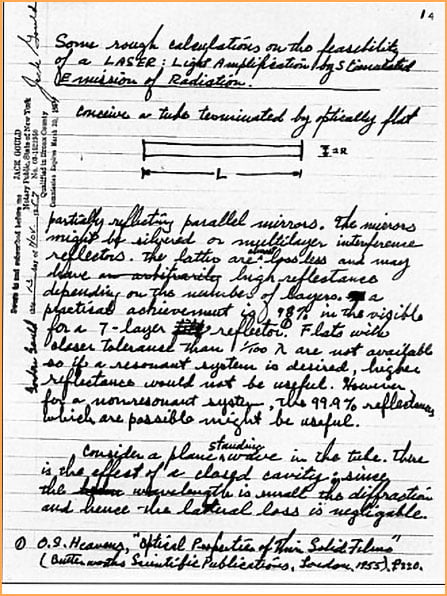 1
Some rough calculations on the feasibility
of a LASER: Light Amplification by Stimulated
Emission of Radiation.
Conceive a tube terminated by optically flat
2R
L
partially reflecting parallel mirrors. The mirrors
might be silvered or multilayer interference
reflectors. The latter are almost lossless and may
have an arbitrarily high reflectance
depending on the number of layers. A
practical achievement is 98% in the visible
for a 7-layer reflector.① Flats with
closer tolerance than 1/100 λ are not available
so if a resonant system is desired, higher
reflectance would not be useful. However
for a nonresonant system, the 99.9% reflectances
which are possible might be useful.
Consider a plane standing wave in the tube. There
is the effect of a closed cavity; since
the wavelength is small the diffraction
and hence the lateral loss is negligible.
① O.S. Heavens, "Optical Properties of Thin Solid Films"
(Butterworths Scientific Publications, London, 1955), p220.
Jack Gould
Gordon Gould
Sworn to and subscribed before me
this 13 day of Nov. 1957
JACK GOULD
Notary Public, State of New York
Qualified in Bronx County
Commission Expires March 30, 1959